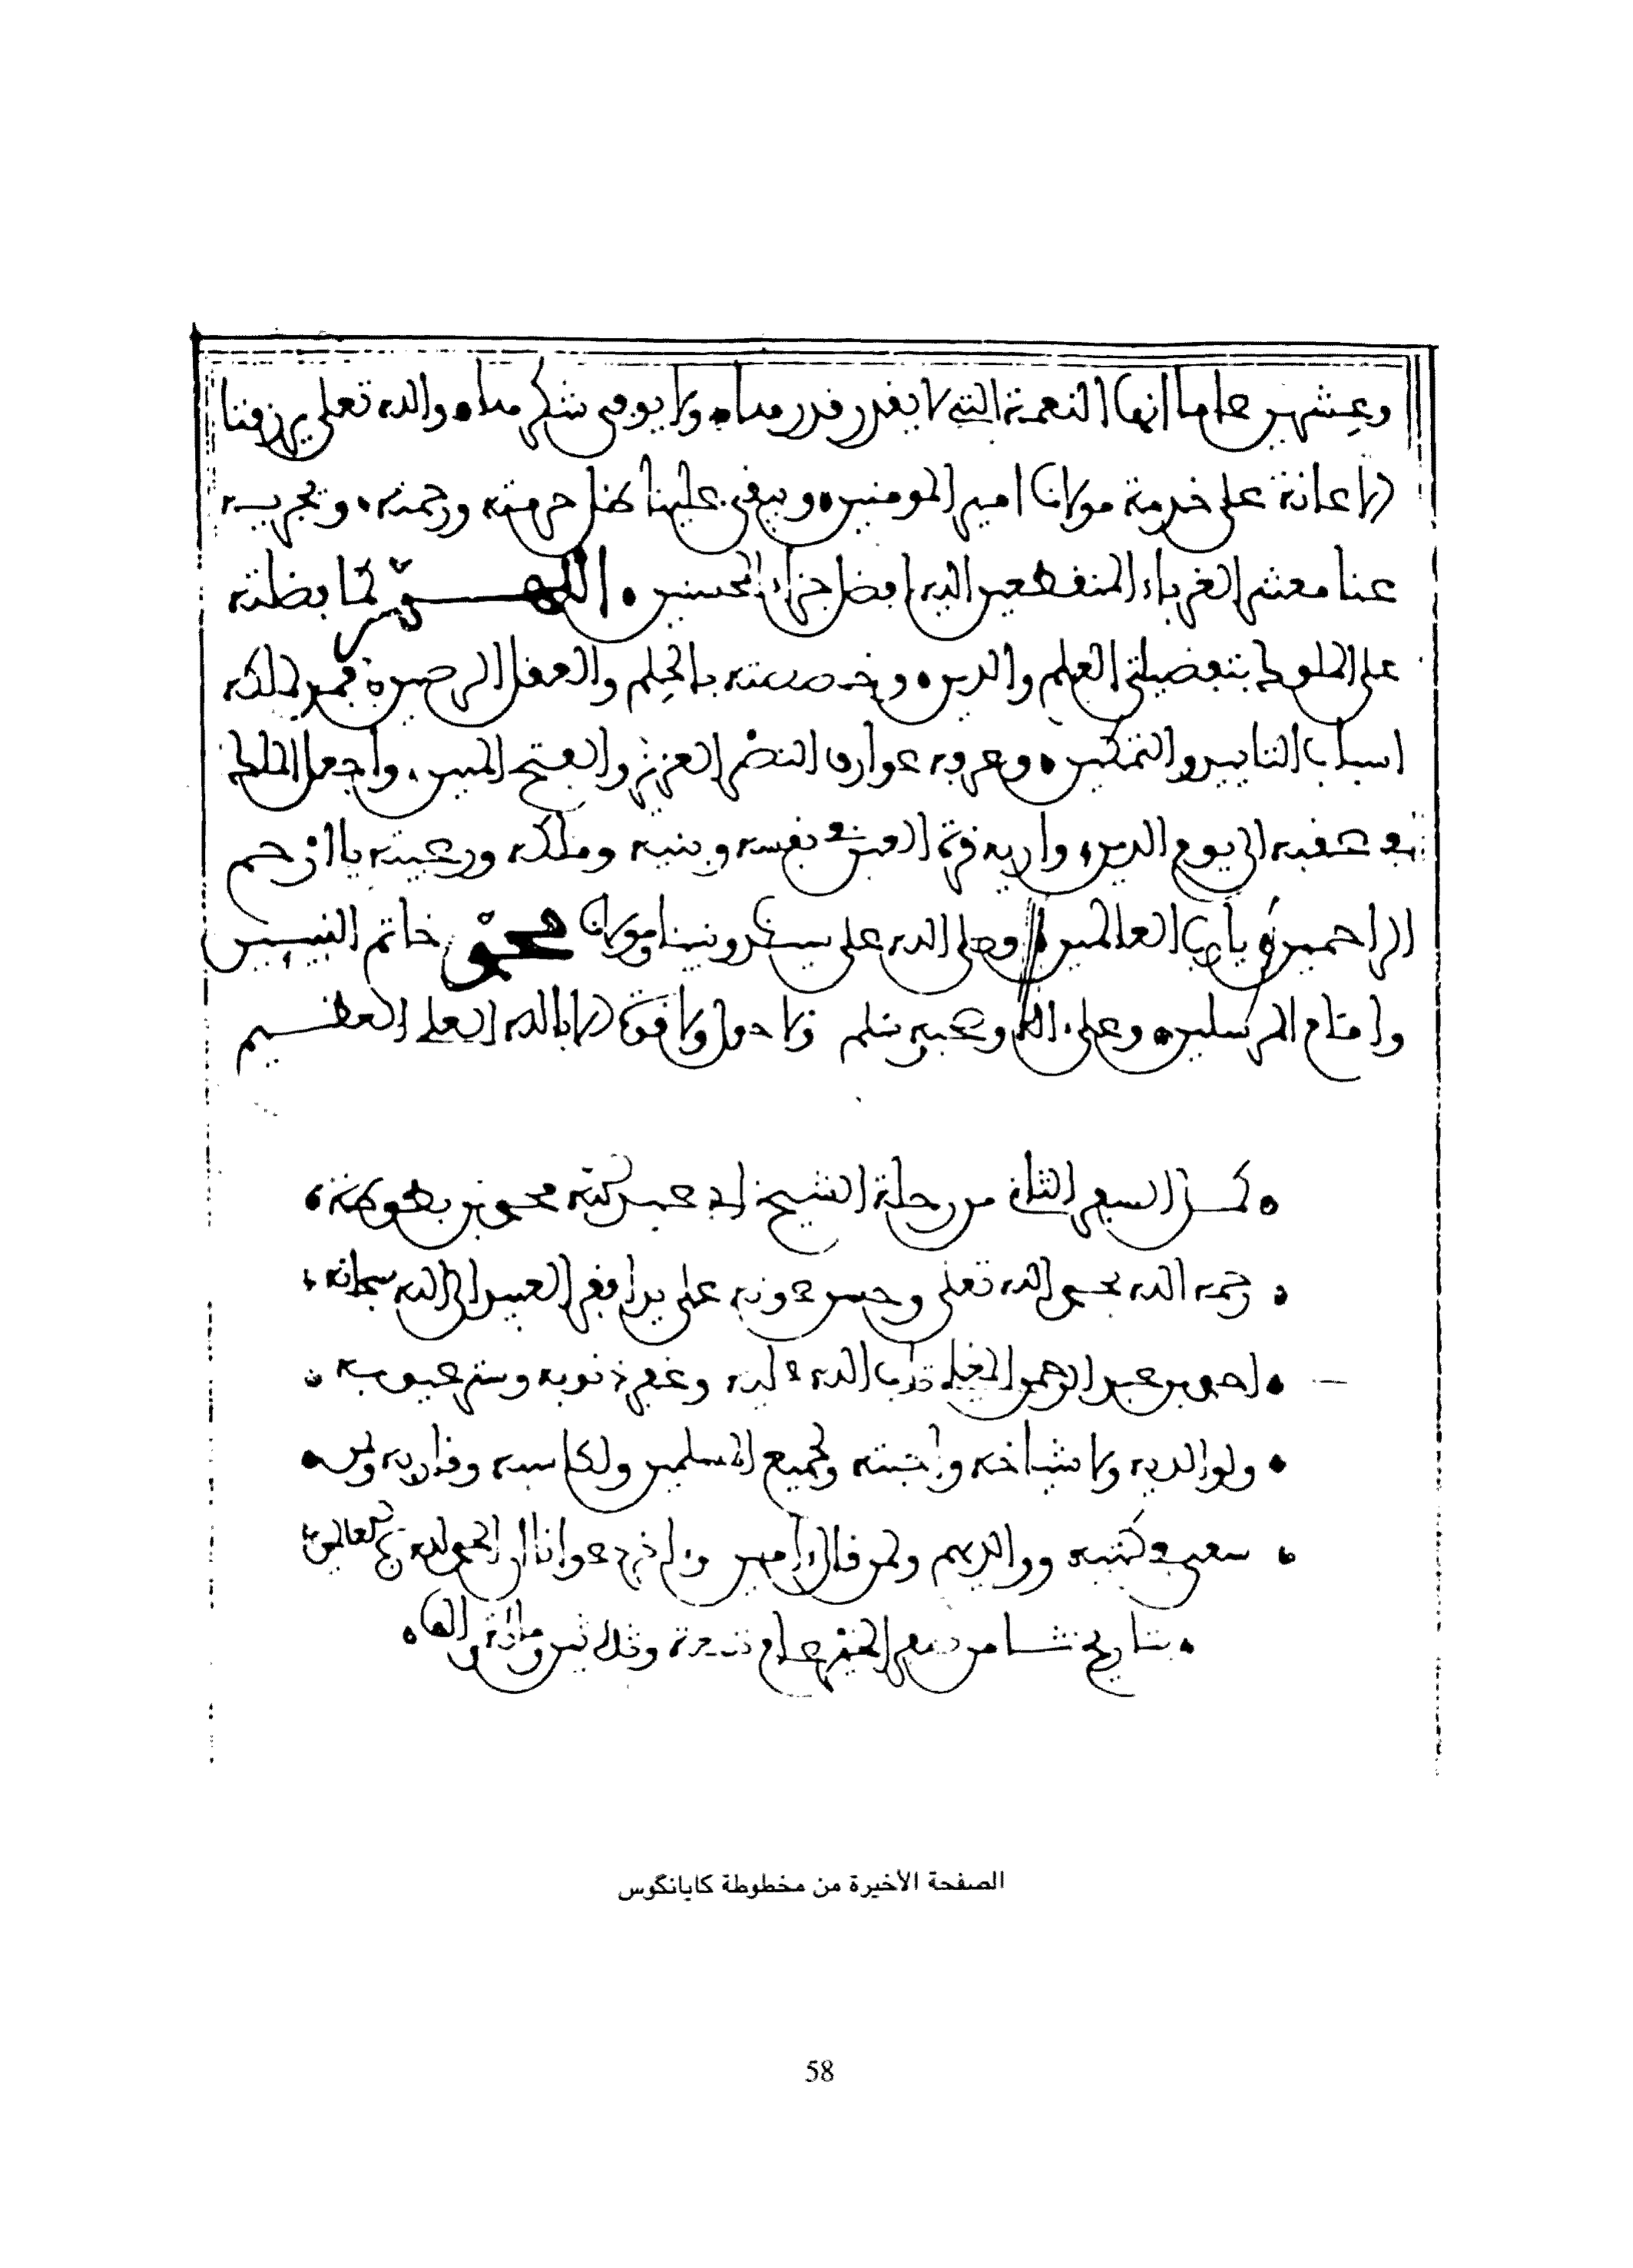 وعشرين عاما انها النعمة التي لا يقدر قدرها ولا يوفى شكرها والله تعلى يرزقنا
الاعانة على خدمة مولانا امير المومنين ويبقي علينا ظل حرمته ورحمته ويجزيه
عنا معشر الغرباء المنقطعين اليه افضل جزاء المحسنين اللهم كما فضلته
على الملوك بفضيلتي العلم والدين وخصصته بالحلم والعقل الرصين فمد لملكه
اسباب التاييد والتمكين وعرفه عوارف النصر العزيز والفتح المبين واجعل الملك
في عقبه الى يوم الدين واره قرة العين في نفسه وبنيه وملكه ورعيته يا ارحم
الراحمين يا رب العالمين وصلى الله على سيدنا ونبينا ومولانا محمد خاتم النبيين
وامام المرسلين وعلى اله وصحبه وسلم ولا حول ولا قوة الا بالله العلي العظيم
كمل السفر الثاني من رحلة الشيخ ابي عبد الله محمد بن بطوطة
رحمه الله بحمد الله تعلى وحسن عونه على يد افقر العبيد الى الله سبحانه
احمد بن عبد الرحمن تاب الله عليه وغفر ذنوبه وستر عيوبه
ولوالديه ولاشياخه واحبته ولجميع المسلمين ولكاسبه وقاريه ولمن
سعى في كتبه ووالديهم ولمن قال امين واخر دعوانا ان الحمد لله رب العالمين
بتاريخ من صفر الخير عام وثلاثين ومائة والف
الصفحة الأخيرة من مخطوطة كايانگوس
58